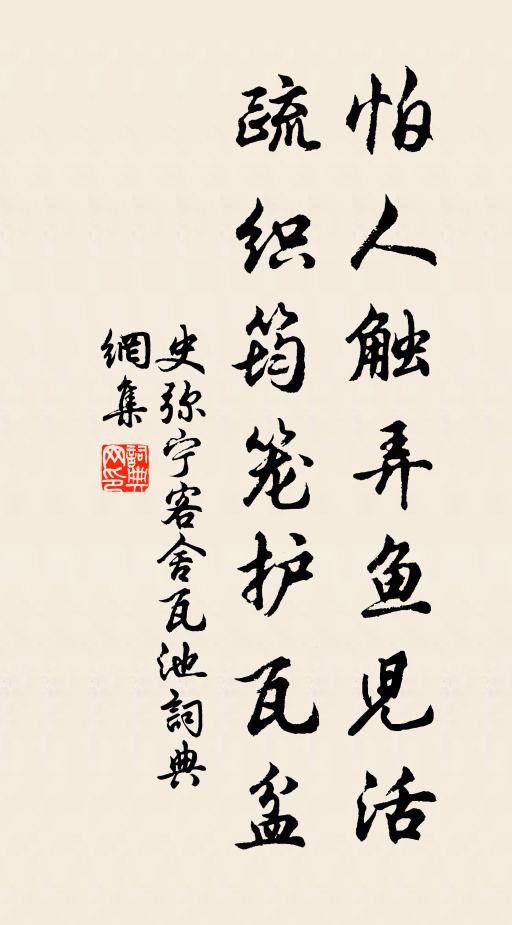 怕人触弄鱼児活
疏织筠笼护瓦盆
史弥宁客舍瓦池詞典
網集
詞典
网印